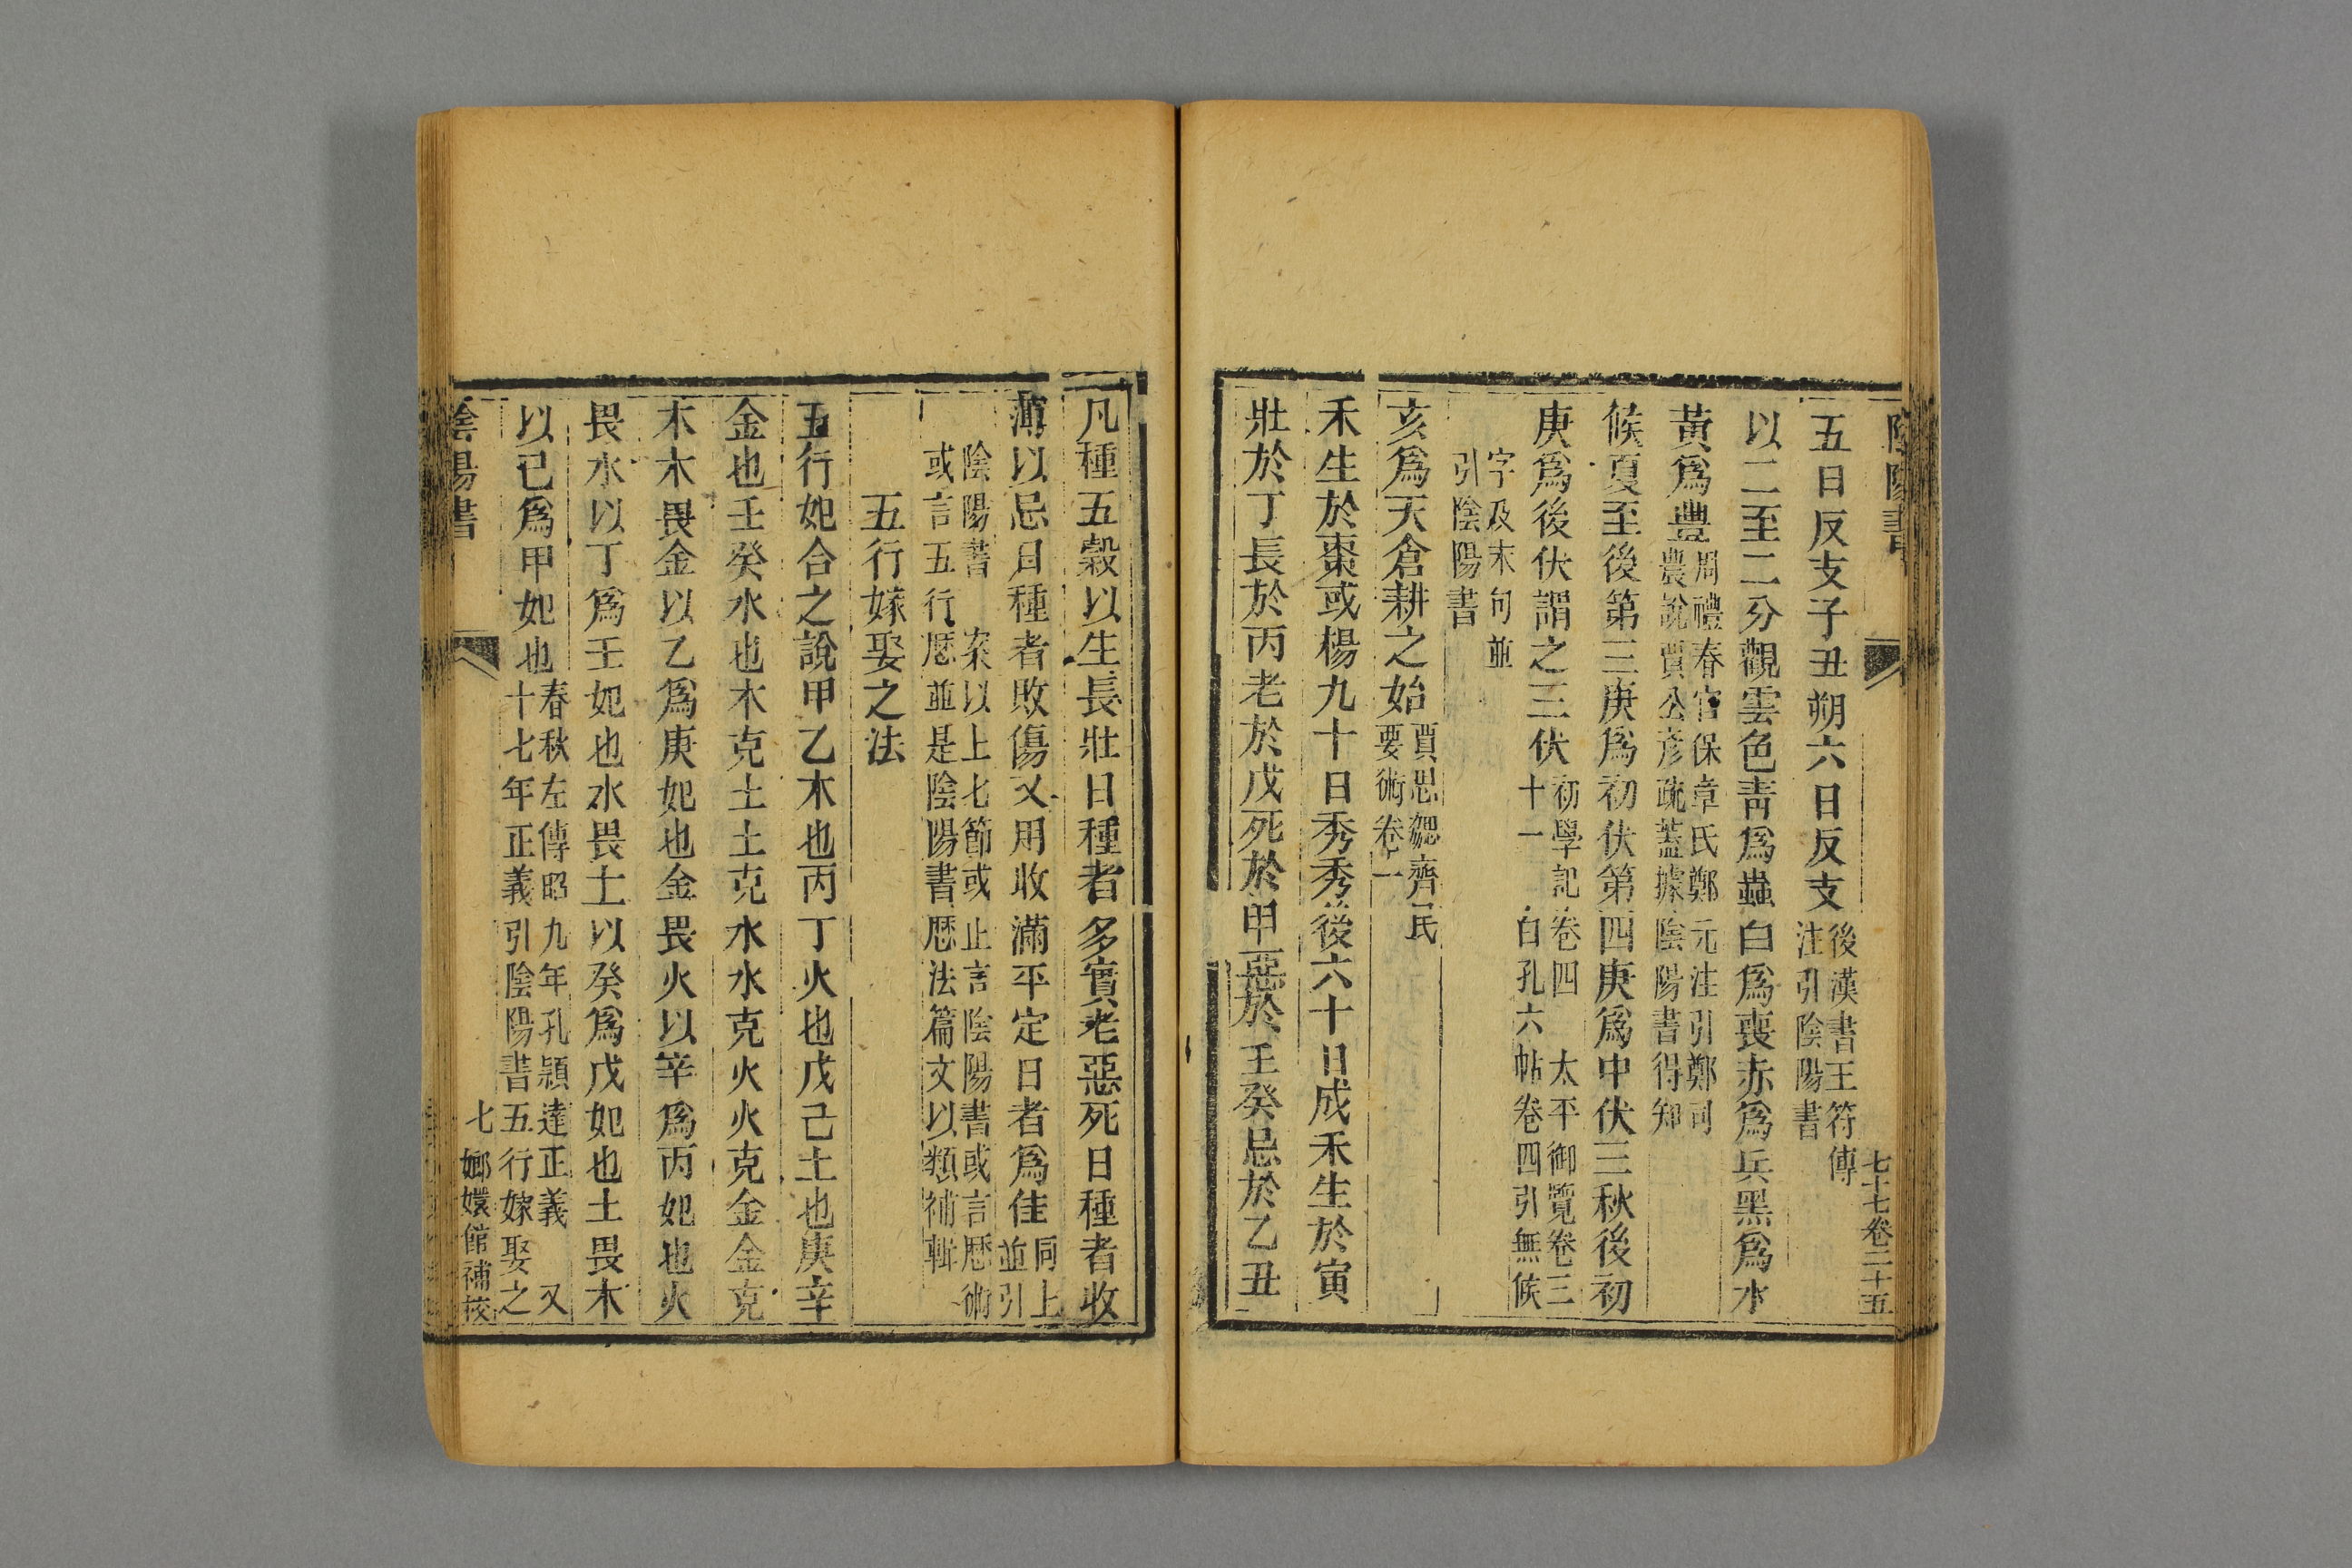 陰陽書
七十七卷二十五
五日反支子丑朔六日反支後漢書王符傳注引陰陽書
以二至二分觀雲色靑爲蟲白爲喪赤爲兵黑爲水
黃爲豐周禮春官保章氏鄭元注引鄭司農說賈公彥疏蓋據陰陽書得知
候夏至後第三庚爲初伏第四庚爲中伏三秋後初
庚爲後伏謂之三伏初學記卷四 太平御覽卷三十一 白孔六帖卷四引無候
字及末句並引陰陽書
亥爲天倉耕之始賈思勰齊民要術卷一
禾生於棗或楊九十日秀秀後六十日成禾生於寅
壯於丁長於丙老於戊死於甲惡於壬癸忌於乙丑
凡種五穀以生長壯日種者多實老惡死日種者收
薄以忌日種者敗傷又用收滿平定日者爲佳同上並引
陰陽書 案以上七節或止言陰陽書或言厯術或言五行厯並是陰陽書厯法篇文以類補輯
五行嫁娶之法
五行妃合之說甲乙木也丙丁火也戊己土也庚辛
金也壬癸水也木克土土克水水克火火克金金克
木木畏金以乙爲庚妃也金畏火以辛爲丙妃也火
畏水以丁爲壬妃也水畏土以癸爲戊妃也土畏木
以己爲甲妃也春秋左傳昭九年孔穎達正義 又十七年正義引陰陽書五行嫁娶之
陰陽書
七 嫏嬛館補校